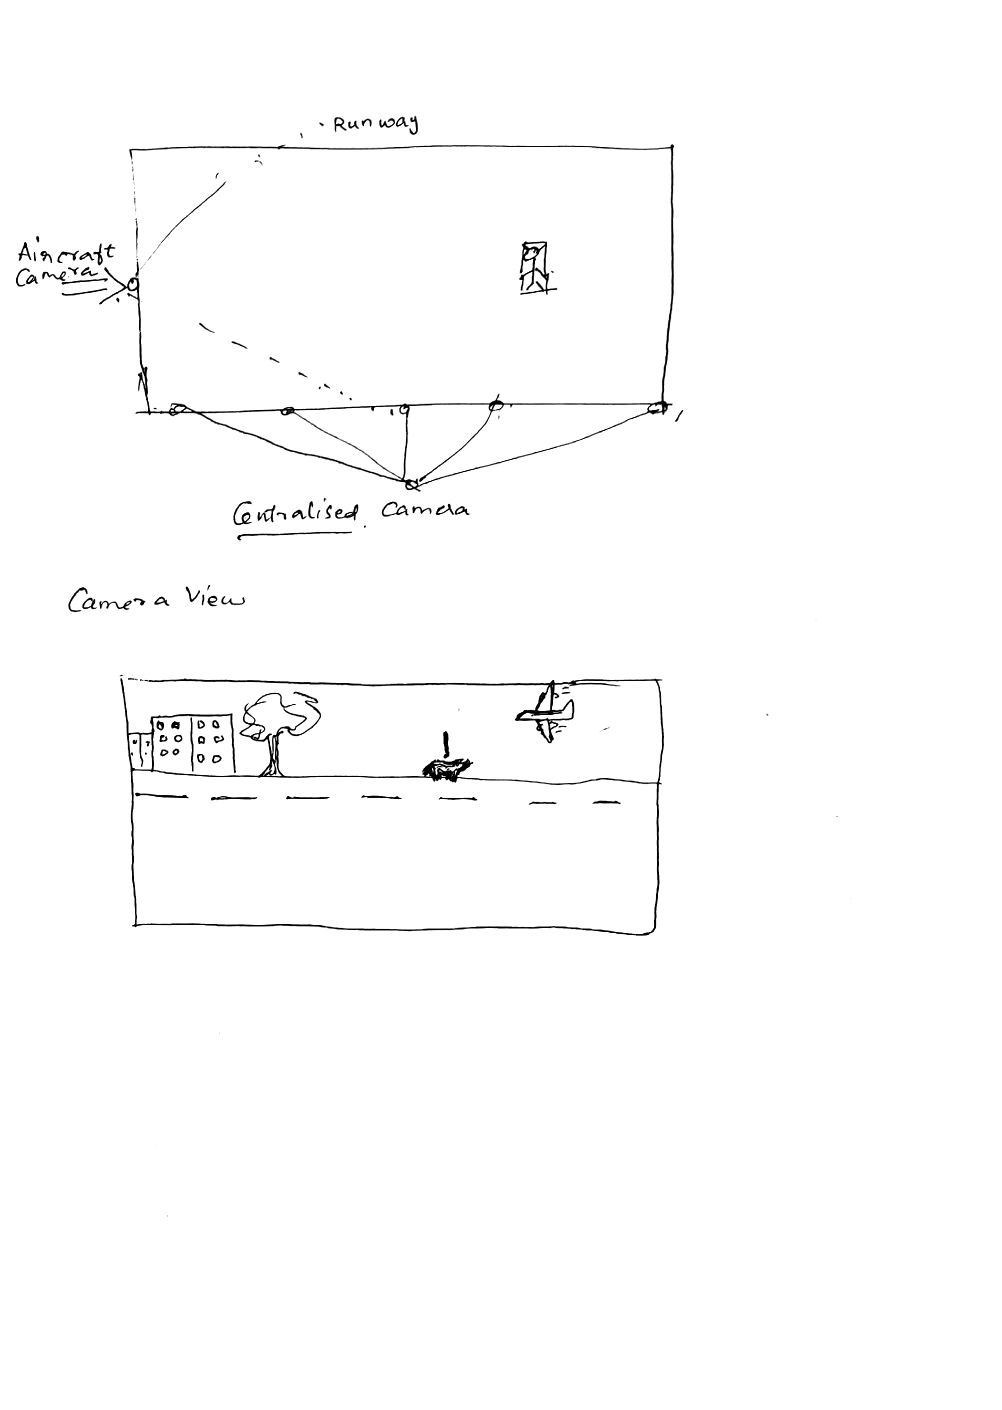 Runway
Aircraft
Camera
Centralised Camera
Camera View